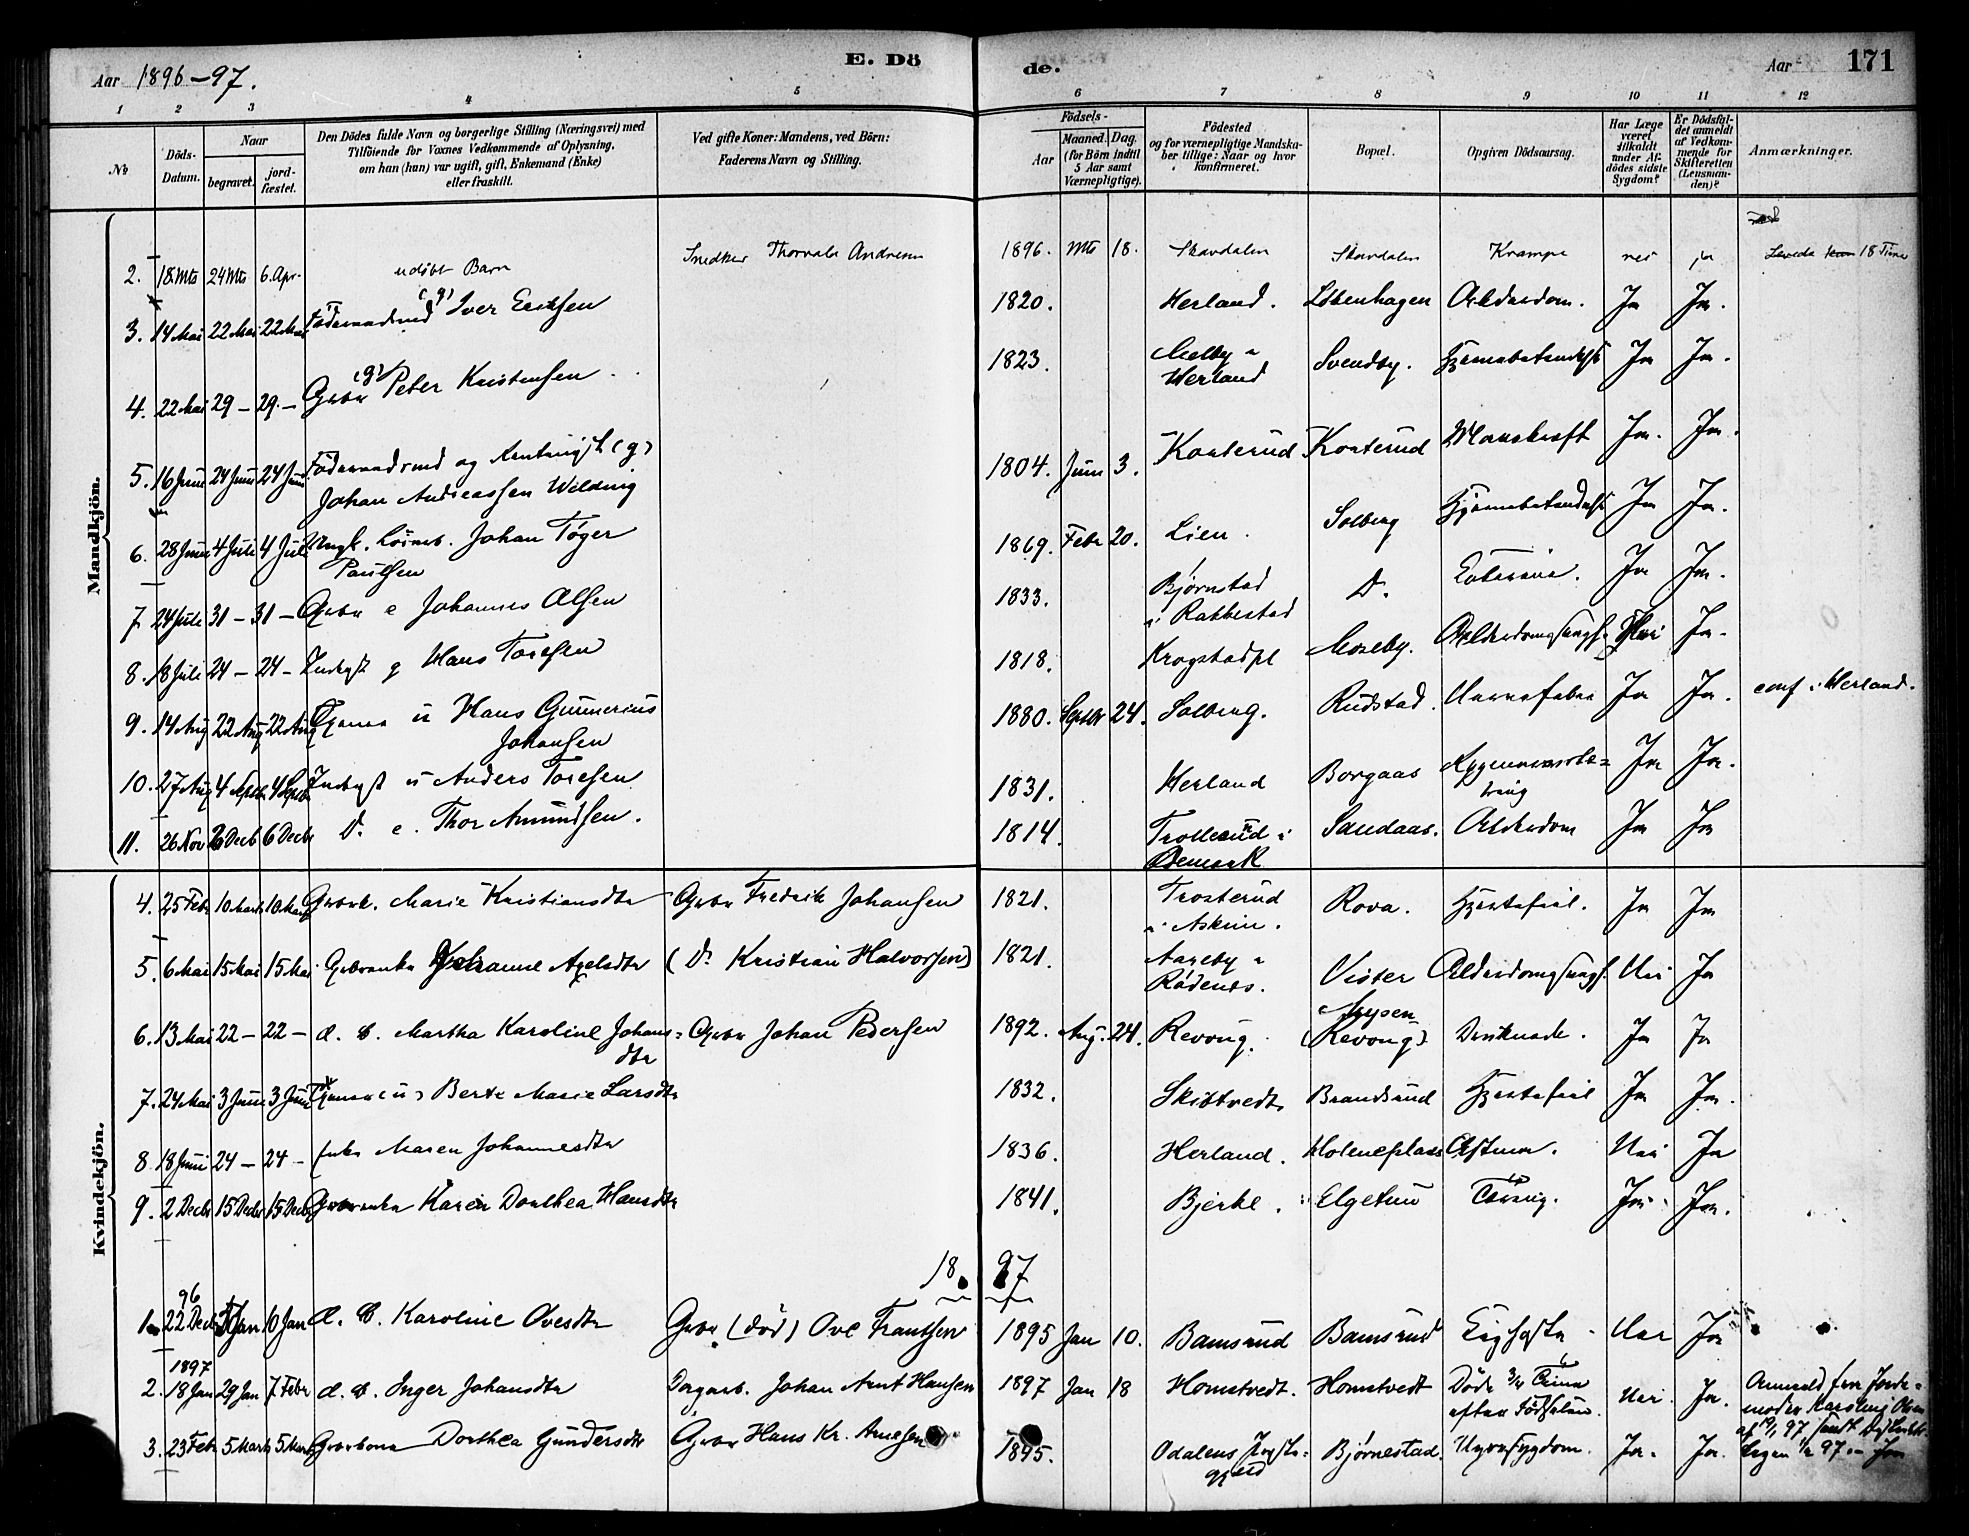 Aar 1896-97.
E. Dö
de.
Aar
171
1 2 3 4 5 6 7 8 9 10 11 12
No
Döds-Datum.
Naar
begravet.
jordfæstet.
Den Dödes fulde Navn og borgerlige Stilling (Næringsvei) med
Tilföiende for Voxnes Vedkommende af Oplysning,
om han (hun) var ugift, gift, Enkemand (Enke)
eller fraskilt.
Ved gifte Koner: Mandens, ved Börn:
Faderens Navn og Stilling.
Födsels-
Aar
Maaned.
Dag.
(for Börn indtil
5 Aar samt
Værnepligtige).
Födested
og for værnepligtige Mandskaber tillige: Naar og hvor
konfirmeret.
Bopæl.
Opgiven Dödsaarsag.
Har Læge været tilkaldt under Afdödes sidste Sygdom?
Er Dödsfaldet anmeldt af Vedkommende for Skifteretten (Lensmanden)?
Anmærkninger.
Mandkjön.
2. 18 Mts 24 Mts 6. Apr. udöbt Barn Snedker Thorvald Andresen 1896. Mts 18. Skavdalen Skavdalen Krampe nei ja Levede kun 18 Timer
3. 14 Mai 22 Mai 22 Mai Föderaadsmd (g) Iver Eriksen 1820. Herland. Löbenhagen Alderdom. Ja Ja.
4. 22 Mai 29 - 29. - Gbr (g) Peter Kristensen 1823. Melby i Herland Svendby. Ja Ja.
5. 16 Juni 24 Juni 24 Juni Föderaadsmd og (g)
Johan Andreassen Welding 1804. Juni 3. Konterud Konterud Ja. Ja.
6. 28 Juni 4 Juli 4 Juli Ungk. Johan Töger
Paulsen 1869. Febr 20. Lien. Solberg Ja Ja.
7. 24 Juli 31 - 31 - Gbr e Johannes Olsen 1833. Björnstad
i Rakkestad D. Ja Ja.
8. 18 Juli 24 - 24 - Inderst g Hans Toresen 1818. Krogstadpl Moseby. Nei Ja.
9. 14 Aug 22 Aug 22 Aug Tjener u Hans Gunnerius
Johansen 1880. Septbr 24. Solberg. Rudstad. Nervefeber Ja Ja. conf. i Herland.
10. 27 Aug 4 Septbr 4 Septbr Inderst u Anders Toresen 1831. Herland Borgaas Ja Ja.
11. 26 Nov 6 Decb 6 Decbr D. e. Thor Amundsen. 1814. Trollerud i
Ødemark Sandaas. Alderdom Ja Ja
Kvindekjön.
4. 25 Febr 10 Marts 10 Marts Gbrk. Marie Kristiansdtr Gbr Fredrik Johansen 1821. Trosterud
i Askim. Rova. Hjertefeil. Ja Ja
5. 6 Mai 15 Mai 15 Mai Gbrenke Johanne Axelsdtr (D. Kristian Halvorsen) 1821. Aaseby i
Rödenes. Vister Nei Ja
6. 13 Mai 22 - 22 - d. B. Martha Karoline Johans=
dtr Gbr Johan Pedersen 1892. Aug. 24. Revoug. Mysen
(Revoug) Druknede. Ja Ja
7. 24 Mai 3 Juni 3 Juni Tjener (u) Berte Marie Larsdtr 1832. Skibtvedt Brandsrud Hjertefeil Ja Ja.
8. 18 Juni 24 - 24 - Enke Maren Johannesdtr 1836. Herland. Moleneplads Asthma. Nei Ja
9. 2 Decbr 15 Decbr 15 Decbr Gbrenke Karen Dorthea Hansdtr 1841. Bjerke. Elgetun Tæring. Ja. Ja.
1897
1. 22 Decb 96 Jan 10 Jan d. B. Karoline Ovesdtr Gbr (död) Ove Frantsen 1895 Jan 10. Bamsrud Bamsrud Nei Ja
2. 1897 18 Jan 29 Jan 7 Febr d. B. Inger Johansdtr Dagarb. Johan Arnt Hansen 1897 Jan 18 Homstvedt. Homstvedt Döde 3/4 Time
efter Födselen. Nei. Ja. Anmeld. fra Jorde=
moder Karoline Olsen
3. 23 Febr 5 Marts 5 Marts Gbrkone Dorthea Gundersdtr Gbr Hans Kr. Arnesen 1895. Odalens Præste=
gjeld Björnestad. Nyresygdom. Ja. Ja.